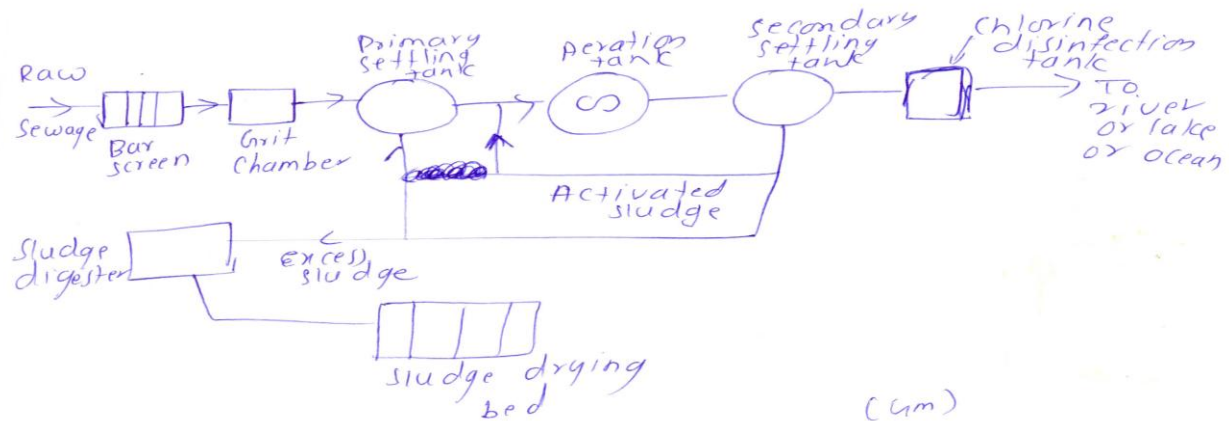 Raw
sewage
Bar
screen
Grit
chamber
Primary
settling
tank
Aeration
tank
secondary
settling
tank
chlorine
disinfection
tank
To
river
or lake
or ocean
Activated
sludge
excess
sludge
sludge
digester
sludge drying
bed
(4m)